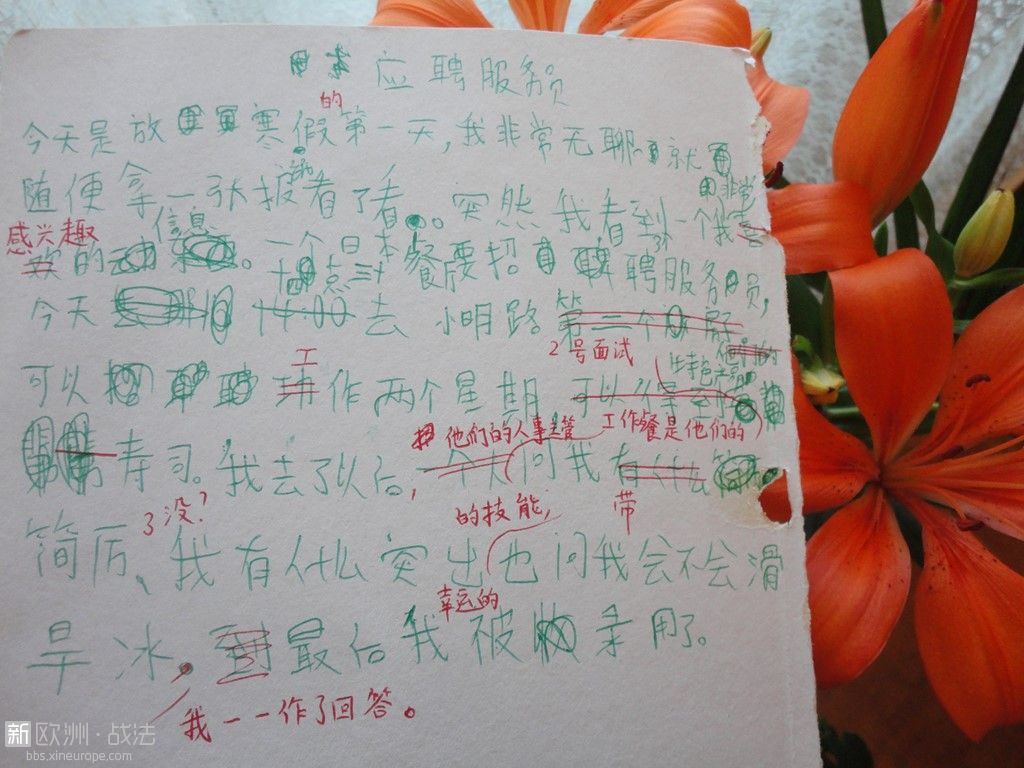 应聘服务员
的
今天是放寒假第一天,我非常无聊就
随便拿一张报看了看。突然我看到一个我
非常
感兴趣
信息
的 。一个日本餐厅要招聘服务员,
十点三十
今天 14:00去 小明路第二个
2号面试
工
可以 作两个星期 可以
他们的人事主管 工作餐是他们的
寿司。我去了以后,一个人问我有什么
的技能,
带
了没?
简历、我有什么突出也问我会不会滑
幸运的
旱冰。最后我被 用了。
我一一作了回答。
新欧洲·战法
bbs.xineurope.com